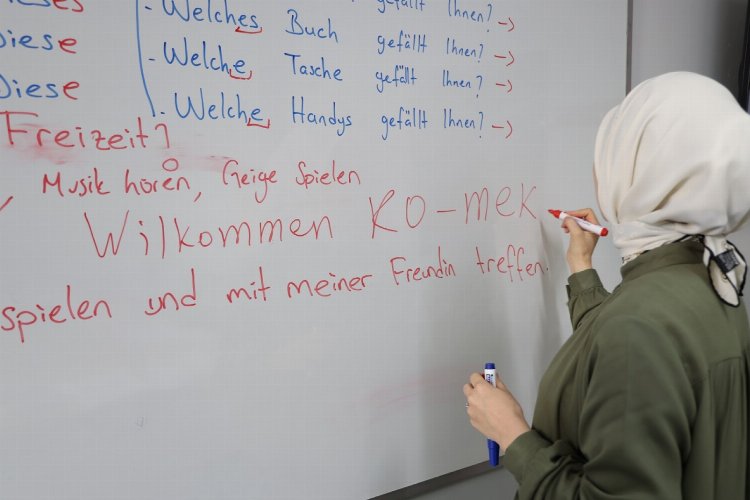 gefällt Ihnen? →
- Welches Buch gefällt Ihnen? →
Diese - Welche Tasche gefällt Ihnen? →
Diese - Welche Handys gefällt Ihnen? →
Freizeit?
Musik hören, Geige Spielen
Wilkommen KO-mek
spielen und mit meiner Freundin treffen.